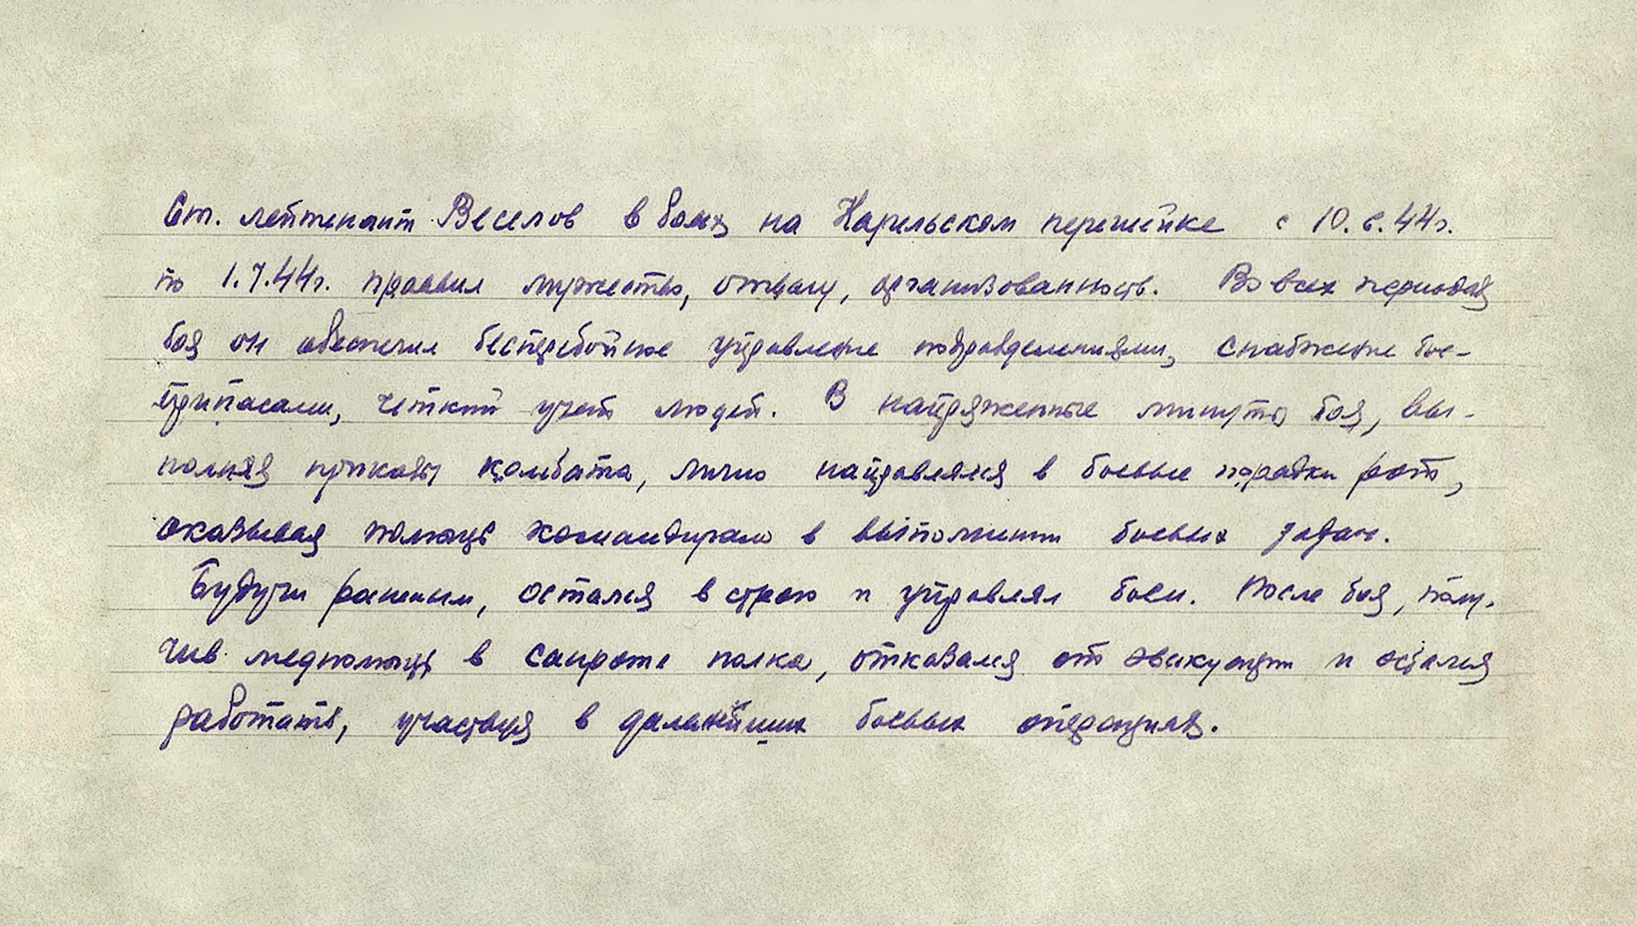 Ст. лейтенант Веселов в боях на Карельском перешейке с 10.6.44г.
по 1.7.44г. проявил мужество, отвагу, организованность. Во всех периодах
боя он обеспечил бесперебойное управление подразделениями, снабжение бое-
припасами, четкий учет людей. В напряженные минуты боя, вы-
полняя приказы комбата, лично направлялся в боевые порядки рот,
оказывая помощь командирам в выполнении боевых задач.
Будучи раненым, остался в строю и управлял боем. После боя, полу-
чив медпомощь в санроте полка, отказался от эвакуации и остался
работать, участвуя в дальнейших боевых операциях.